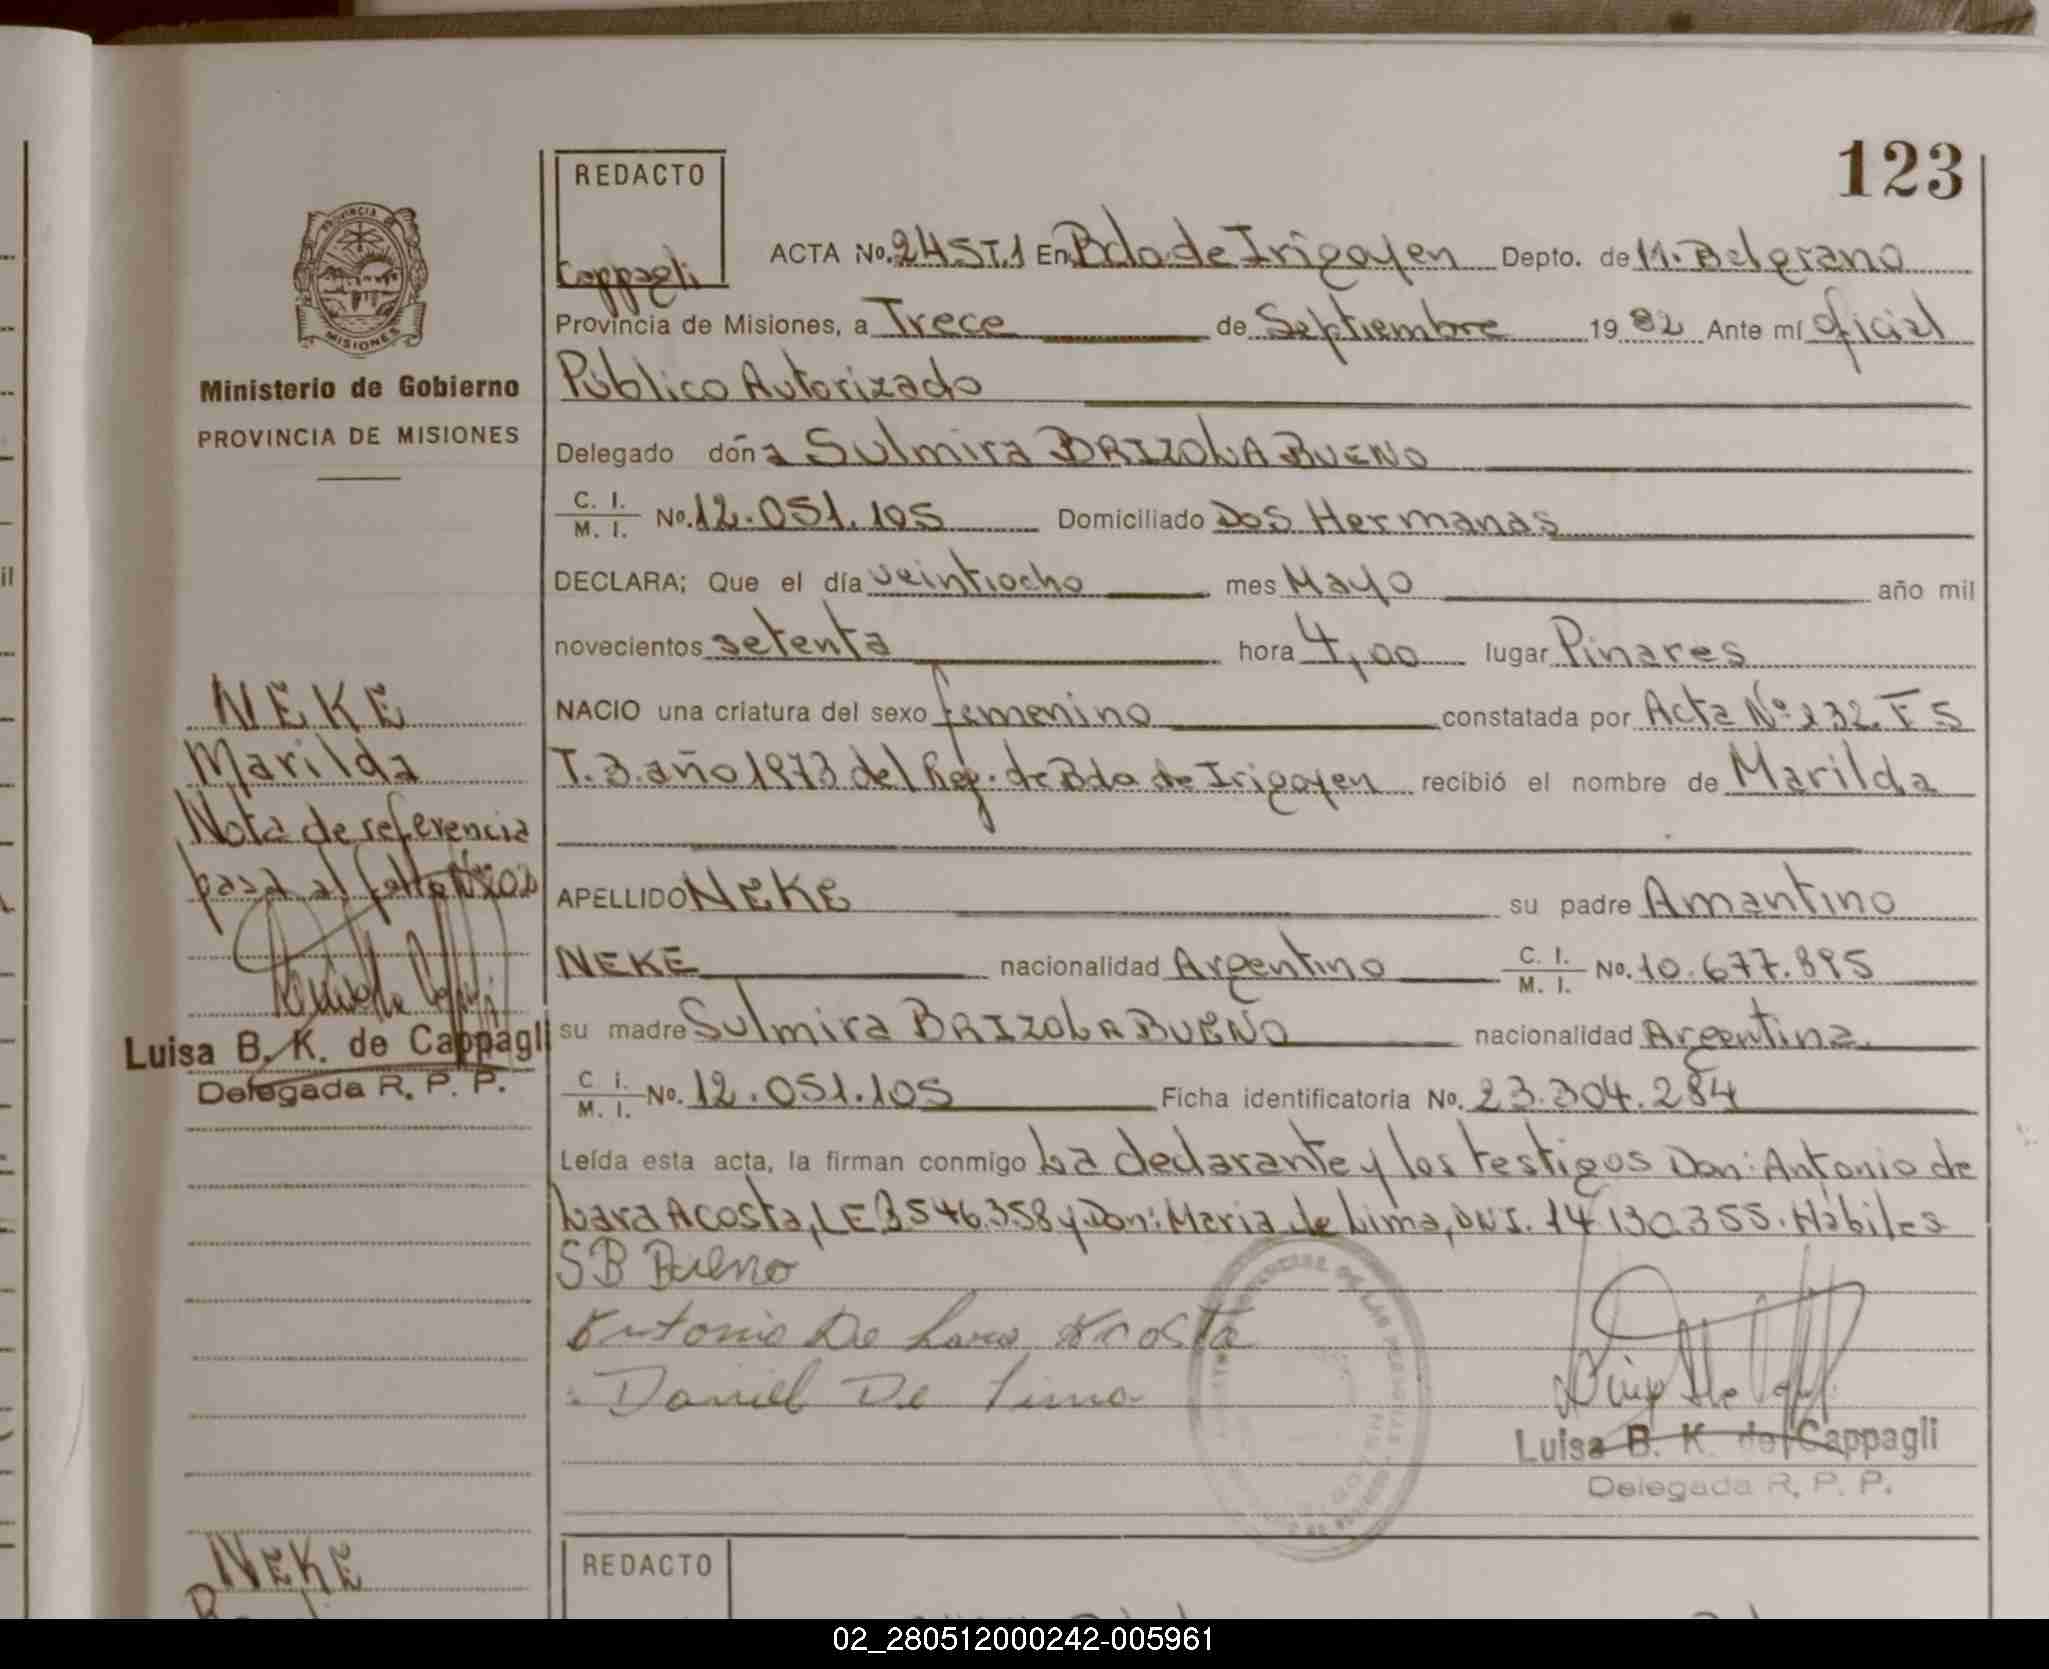 123
REDACTO
Cappagli
PROVINCIA DE
MISIONES
Ministerio de Gobierno
PROVINCIA DE MISIONES
ACTA No. 245T.1 En Bdo de Irigoyen Depto. de M. Belgrano
Provincia de Misiones, a Trece de Septiembre 1982 Ante mí Oficial
Público Autorizado
Delegado doña Sulmira BRIZOLA BUENO
C. I. / M. I. No. 12.051.105 Domiciliado Dos Hermanas
DECLARA; Que el día veintiocho mes Mayo año mil
novecientos setenta hora 4,00 lugar Pinares
NACIO una criatura del sexo femenino constatada por Acta Nº 232. F 5
T. 3. año 1973 del Reg. de Bdo de Irigoyen recibió el nombre de Marilda
APELLIDO NEKE su padre Amantino
NEKE nacionalidad Argentino C. I. / M. I. No. 10.677.895
su madre Sulmira BRIZOLA BUENO nacionalidad Argentina
C i. / M. I. No. 12.051.105 Ficha identificatoria No. 23.304.284
Leída esta acta, la firman conmigo La declarante y los testigos Don: Antonio de
Lara Acosta, LE 3.546.358 y Don: Maria de Lima, DNI. 14.130.355. Hábiles
SB Bueno
Antonio De Lara Acosta
Daniel De Lima
Luisa B. K. de Cappagli
Delegada R. P. P.
NEKE
Marilda
Nota de referencia
pasa al folio
Luisa B. K. de Cappagli
Delegada R. P. P.
NEKE
REDACTO
02_280512000242-005961